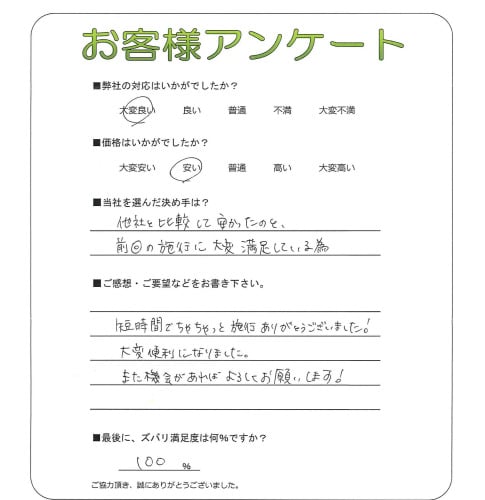 お客様アンケート
■弊社の対応はいかがでしたか？
大変良い 良い 普通 不満 大変不満
■価格はいかがでしたか？
大変安い 安い 普通 高い 大変高い
■当社を選んだ決め手は？
他社と比較して安かったのと、
前回の施行に大変満足している為
■ご感想・ご要望などをお書き下さい。
短時間でちゃちゃっと施行ありがとうございました!
大変便利になりました。
また機会があればよろしくお願いします!
■最後に、ズバリ満足度は何%ですか？
100 %
ご協力頂き、誠にありがとうございました。